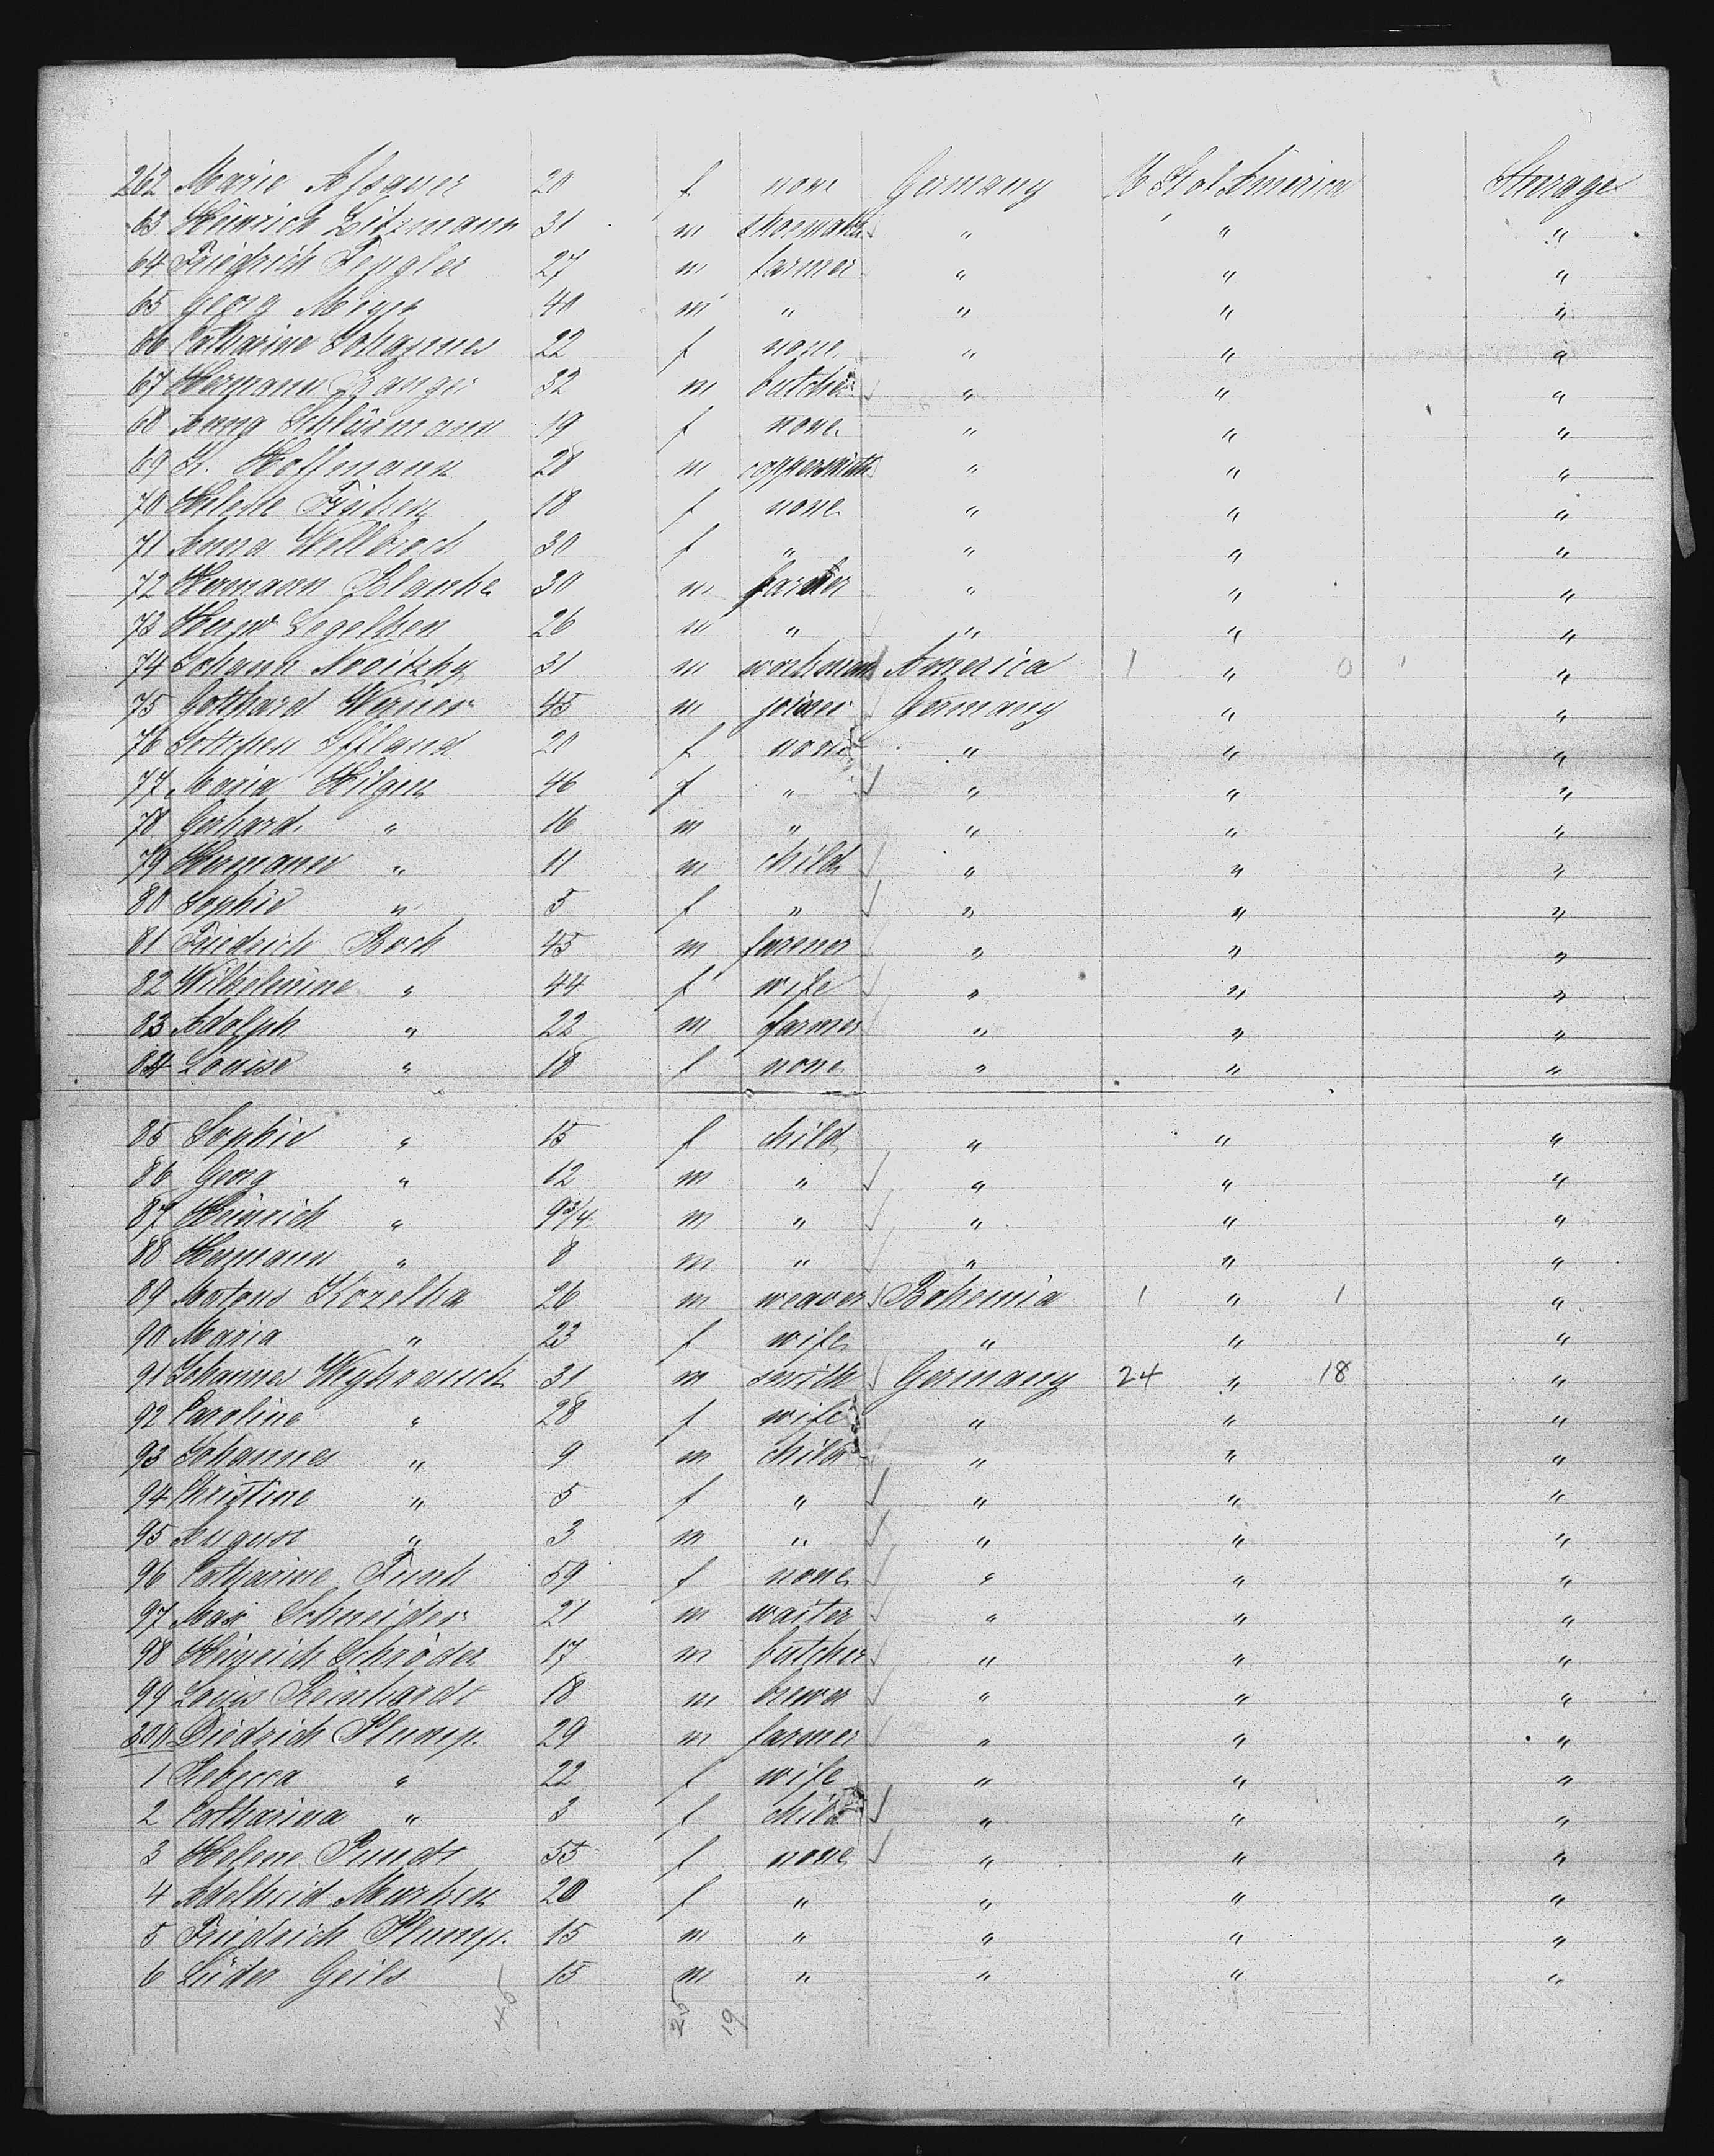 262 Marie 20 f none Germany U St of America Steerage
63 Heinrich Zitzmann 31 m shoemaker " " "
64 Friedrich Fengler 27 m farmer " " "
65 Georg Meyer 40 m " " " "
66 Catharine Johannes 22 f none " " "
67 Hermann 32 m butcher " " "
68 Anna Schlürmann 19 f none " " "
69 Hoffmann 28 m coppersmith " " "
70 Helene 18 f none " " "
71 Anna Wellbrock 30 f " " " "
72 Hermann Blanke 30 m " " "
73 Segelken 26 m " " " "
74 Johann 31 m workman America 1 " 0 "
75 Gotthard Werner 45 m joiner Germany " "
76 Iffland 20 f none " " "
77 Maria Hilgen 46 f " " " "
78 Gerhard " 16 m " " " "
79 Hermann " 11 m child " " "
80 Sophie " 5 f " " " "
81 Friedrich Bock 45 m farmer " " "
82 Wilhelmine " 44 f wife " " "
83 Adolph " 22 m farmer " " "
84 Louise " 18 f none " " "
85 Sophie " 15 f child " " "
86 Georg " 12 m " " " "
87 Heinrich " 9 3/4 m " " " "
88 Hermann " 8 m " " " "
89 Kozelka 26 m weaver Bohemia 1 " 1 "
90 Maria " 23 f wife " " "
91 Johannes Weyhrauch 31 m smith Germany 24 " 18 "
92 Caroline " 28 f wife " " "
93 Johannes " 9 m child " " "
94 Christine " 5 f " " " "
95 August " 3 m " " " "
96 Catharine 59 f none " " "
97 Max Schneider 21 m waiter " " "
98 Heinrich Schröder 17 m butcher " " "
99 Louis Reinhardt 18 m brewer " " "
300 Diedrich Plump. 29 m farmer " " "
1 Rebecca " 22 f wife " " "
2 Catharina " 3 f child " " "
3 Helene Pundt 55 f none " " "
4 Adelheid Murken 20 f " " " "
5 Friedrich Plump. 15 m " " " "
6 Lüder Geils 15 m " " " "
45 25 19